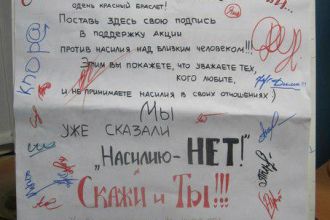 одень красный браслет!
Поставь здесь свою подпись
в поддержку акции
против насилия над близким человеком!!!
Этим вы покажете, что уважаете тех,
кого любите,
и не принимаете насилия в своих отношениях :)
Мы
уже сказали
„Насилию- НЕТ!"
Скажи и Ты!!!